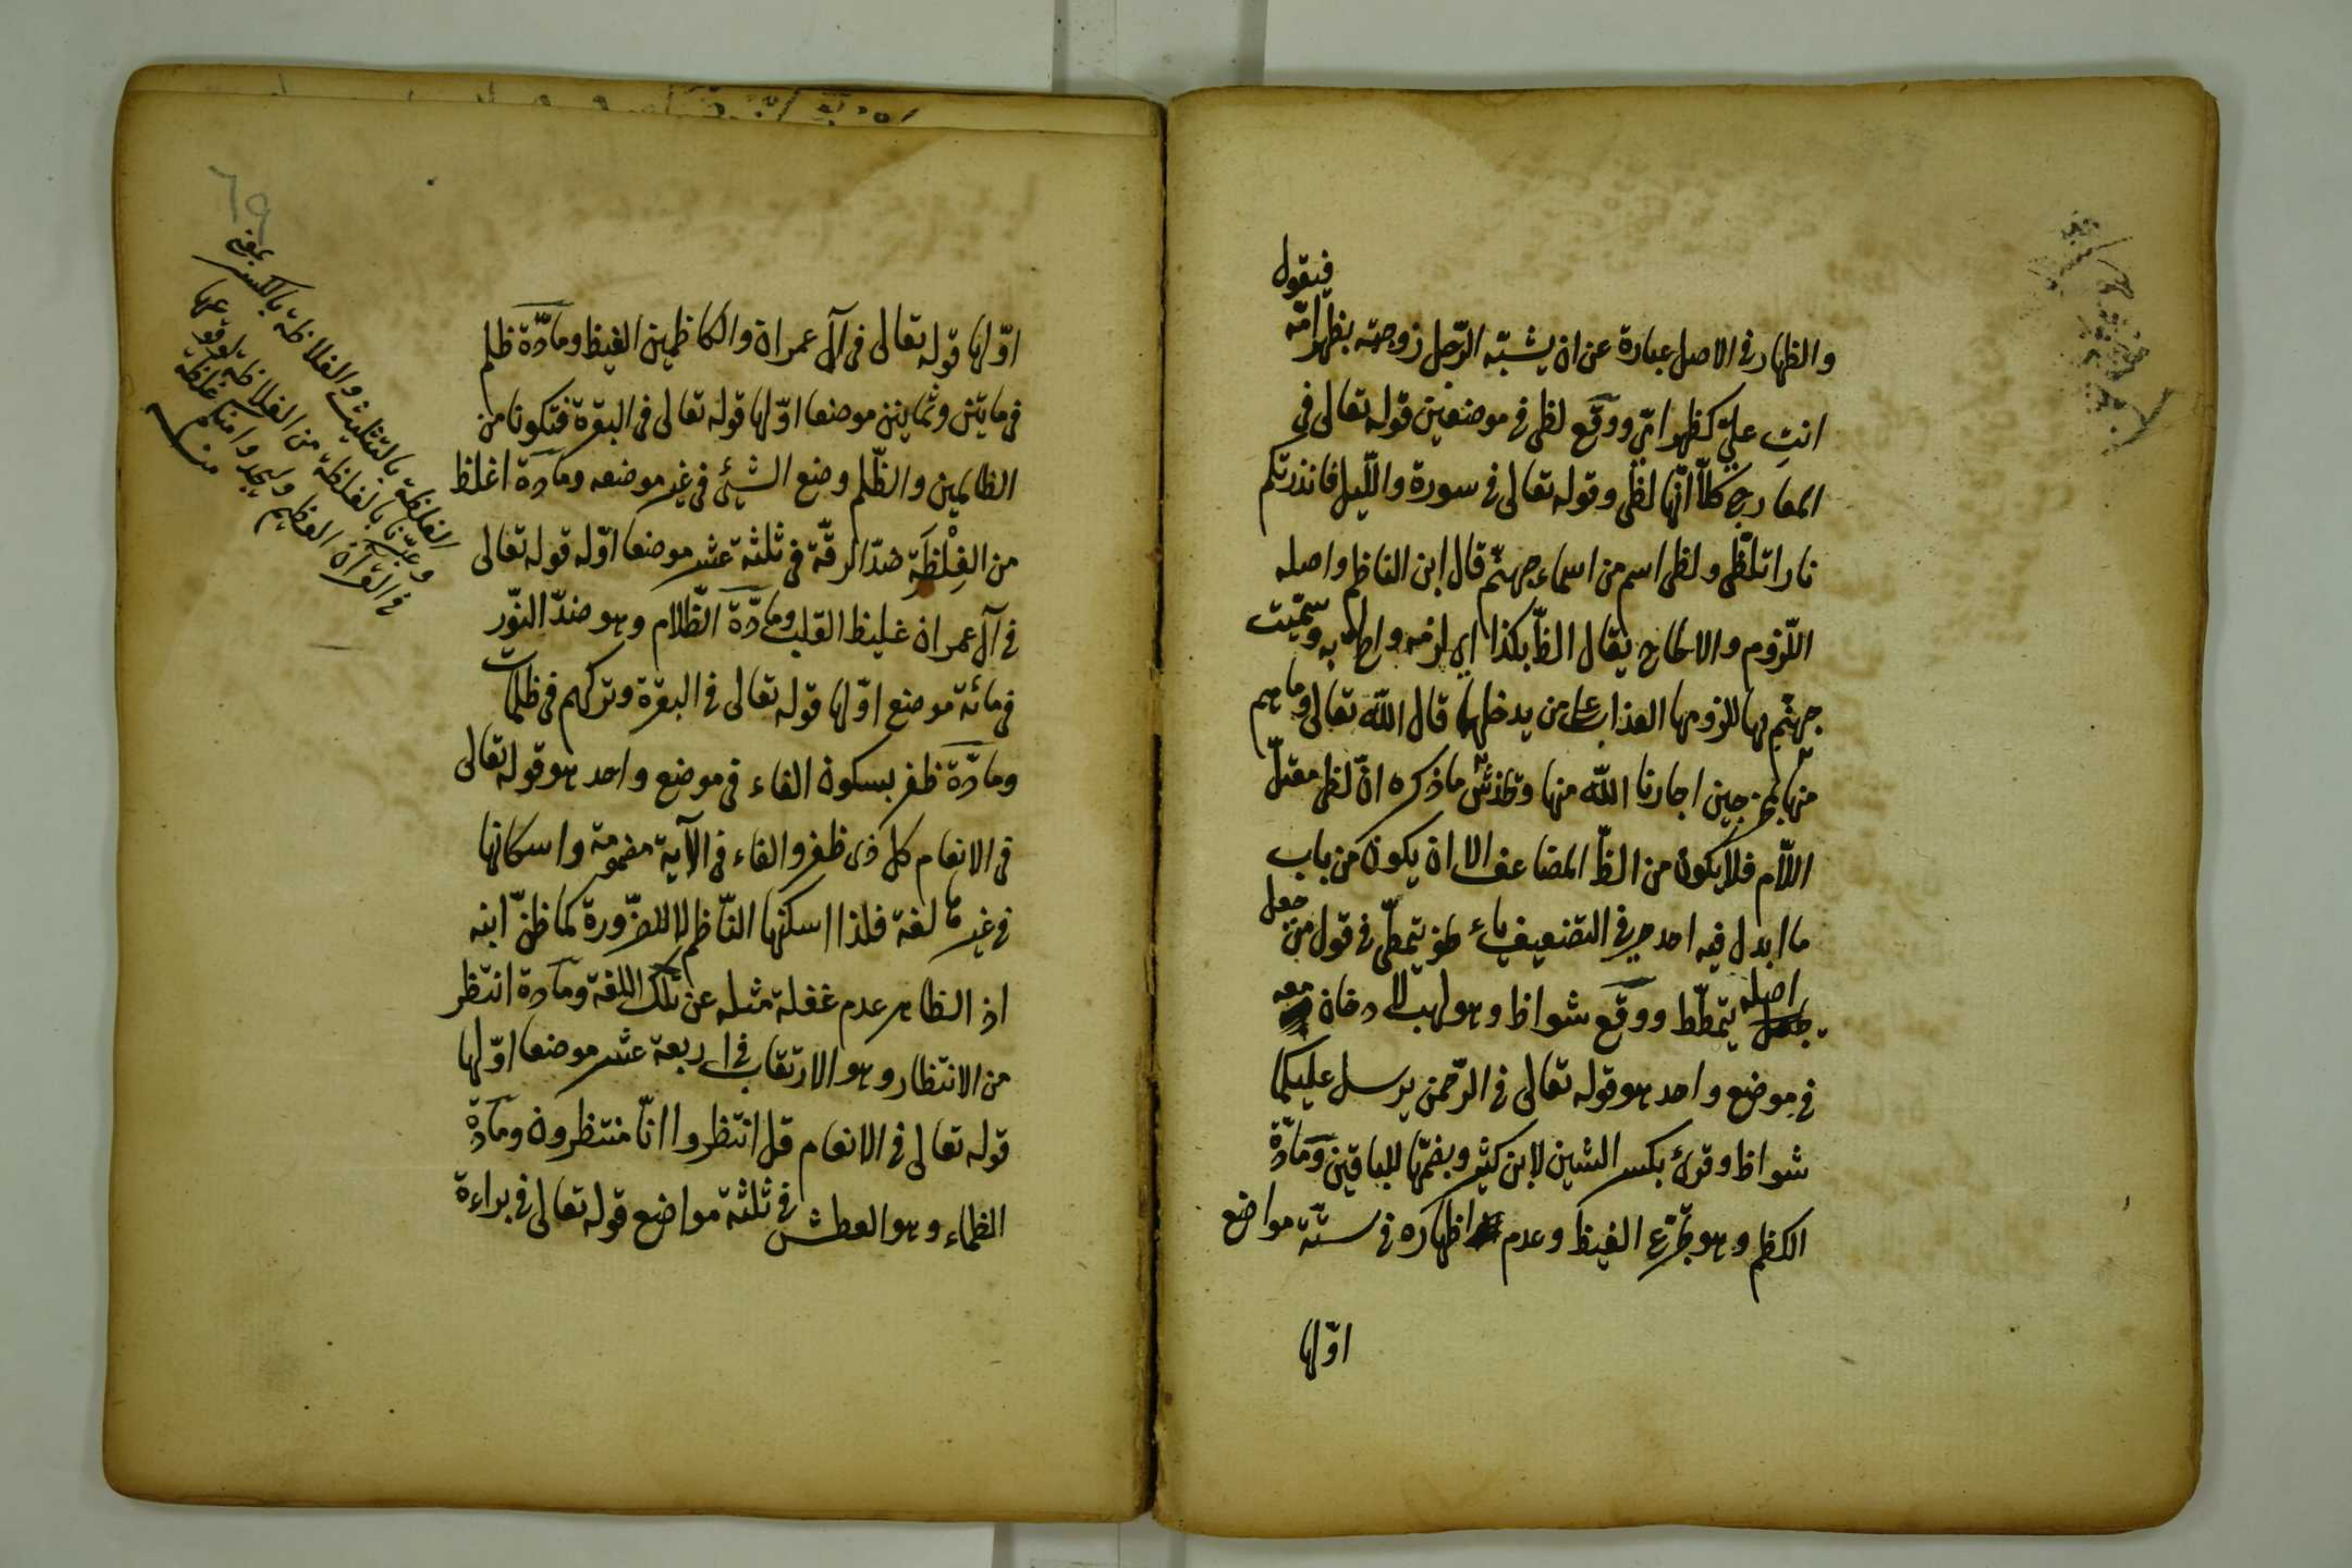 والظهار في الاصل عبارة عن ان يشبّه الرّجل زوجته بظهر امّه فيقول
انتِ عليّ كظهر امّي ووقع لظى في موضعين قوله تعالى في
المعارج كلّا انّها لظى وقوله تعالى في سورة واللّيل فانذرتكم
نارا تلظّى ولظى اسم من اسماء جهنّم قال ابن الناظم واصله
اللّزوم والالحاح يقال الظّ بكذا اي لزمه به وسمّيت
جهنّم بها للزومها العذاب على من يدخلها قال الله تعالى وما هم
منها بمخرجين اجارنا الله منها ما ذكره انّ لظى معتلّ
اللّام فلا يكون من الظّ المضاعف الا ان يكون من باب
ما ابدل فيه احد حرفي التضعيف ياء يتمطّى في قول من جعل
اصله يتمطّط ووقع شواظ وهو لهب لا دخان معه
في موضع واحد هو قوله تعالى في الرّحمن يرسل عليكما
شواظ وقرئ بكسر الشين لابن كثير وبضمّها للباقين ومادّة
الكظم وهو تجرّع الغيظ وعدم اظهاره في ستّة مواضع
اوّلها
٦٩
اوّلها قوله تعالى في آل عمران والكاظمين الغيظ ومادّة ظلم
في مايتن وثمانين موضعا اوّلها قوله تعالى في البقرة فتكونا من
الظالمين والظّلم وضع الشيئ في غير موضعه ومادة اغلظ
من الغِلْظَة ضدّ الرقّة في ثلثة عشر موضعا اوّله قوله تعالى
في آل عمران غليظ القلب ومادّة الظّلام وهو ضدّ النّور
في مائة موضع اوّلها قوله تعالى في البقرة وتركهم في ظلمات
ومادّة ظفر بسكون الفاء في موضع واحد هو قوله تعالى
في الانعام كل ذى ظفر والفاء في الآية مضمومة واسكانها
في غيرها لغة فلذا اسكنها النّاظم لا للضّرورة كما ظنّ ابنه
اذ الظاهر عدم غفلة مثله عن تلك اللغة ومادة انتظر
من الانتظار وهو الارتقاب في اربعة عشر موضعا اوّلها
قوله تعالى في الانعام قل انتظروا انّا منتظرون ومادّة
الظماء وهو العطش في ثلثة مواضع قوله تعالى في براءة
الغلظة بالتثليث والغلاظة بالكسر
وعبّرنا بالغلظة من الغلاظة لوقوعها
في القرآن العظيم وليجدوا فيكم غلظة
منه